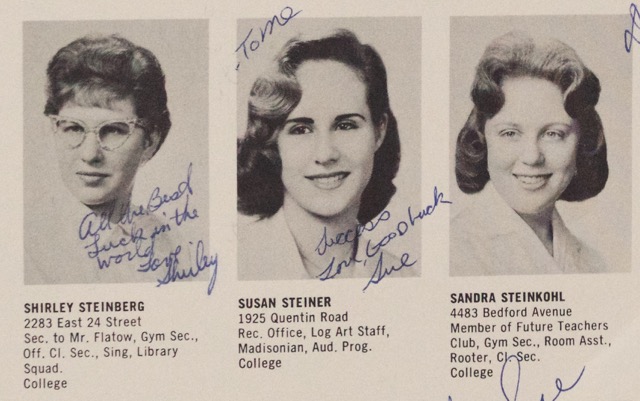 To me
All the Best
Luck in the
World
Love
Shirley
Success
Love, Good Luck
Sue
SHIRLEY STEINBERG
2283 East 24 Street
Sec. to Mr. Flatow, Gym Sec.,
Off. Cl. Sec., Sing, Library
Squad.
College
SUSAN STEINER
1925 Quentin Road
Rec. Office, Log Art Staff,
Madisonian, Aud. Prog.
College
SANDRA STEINKOHL
4483 Bedford Avenue
Member of Future Teachers
Club, Gym Sec., Room Asst.,
Rooter, Cl. Sec.
College